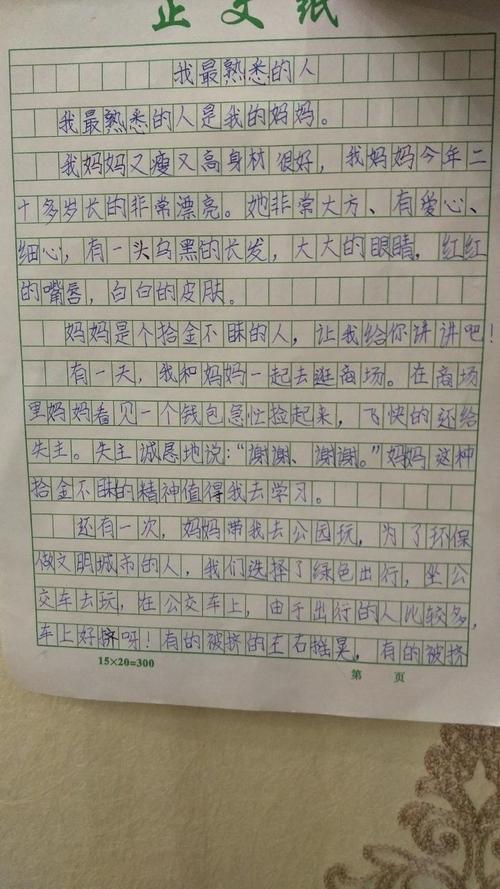 正文纸
我最熟悉的人
我最熟悉的人是我的妈妈。
我妈妈又瘦又高身材很好，我妈妈今年二
十多岁长的非常漂亮。她非常大方、有爱心、
细心，有一头乌黑的长发，大大的眼睛，红红
的嘴唇，白白的皮肤。
妈妈是个拾金不昧的人，让我给你讲讲吧！
有一天，我和妈妈一起去逛商场。在商场
里妈妈看见一个钱包急忙捡起来，飞快的还给
失主。失主诚恳地说：“谢谢、谢谢。”妈妈这种
拾金不昧的精神值得我去学习。
还有一次，妈妈带我去公园玩，为了环保
做文明城市的人，我们选择了绿色出行，坐公
交车去玩，在公交车上，由于出行的人比较多，
车上好挤呀！有的被挤的左右摇晃，有的被挤
15×20=300 第 页